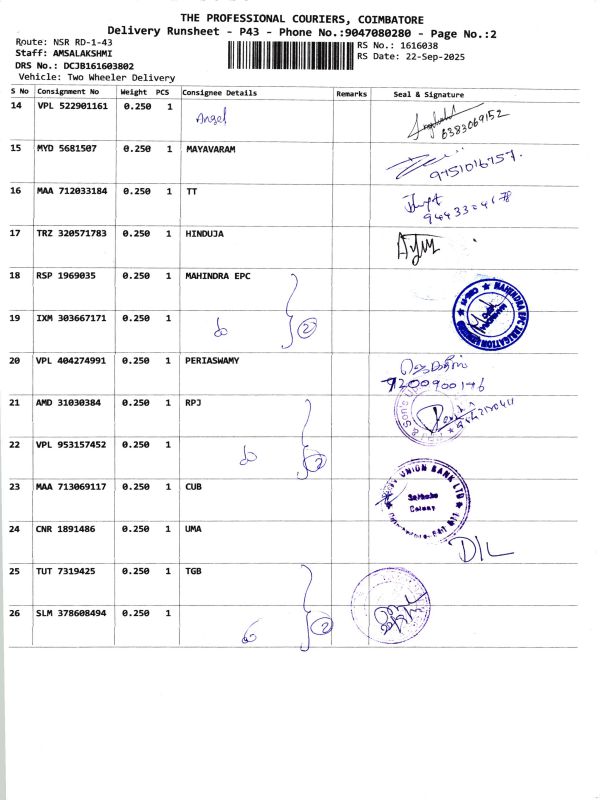 THE PROFESSIONAL COURIERS, COIMBATORE
Delivery Runsheet - P43 - Phone No.:9047080280 - Page No.:2
Route: NSR RD-1-43
RS No.: 1616038
Staff: AMSALAKSHMI
RS Date: 22-Sep-2025
DRS No.: DCJB161603802
Vehicle: Two Wheeler Delivery
S No Consignment No Weight PCS Consignee Details Remarks Seal & Signature
14 VPL 522901161 0.250 1 Angel
6383069152
15 MYD 5681507 0.250 1 MAYAVARAM
9751016757.
16 MAA 712033184 0.250 1 TT
17 TRZ 320571783 0.250 1 HINDUJA
18 RSP 1969035 0.250 1 MAHINDRA EPC
MAHINDRA EPC IRRIGATION
19 IXM 303667171 0.250 1 2
20 VPL 404274991 0.250 1 PERIASWAMY
9200900146
21 AMD 31030384 0.250 1 RPJ
& Sons
22 VPL 953157452 0.250 1 2
23 MAA 713069117 0.250 1 CUB
UNION BANK LTD
Colony
24 CNR 1891486 0.250 1 UMA
D/L
25 TUT 7319425 0.250 1 TGB
26 SLM 378608494 0.250 1 2